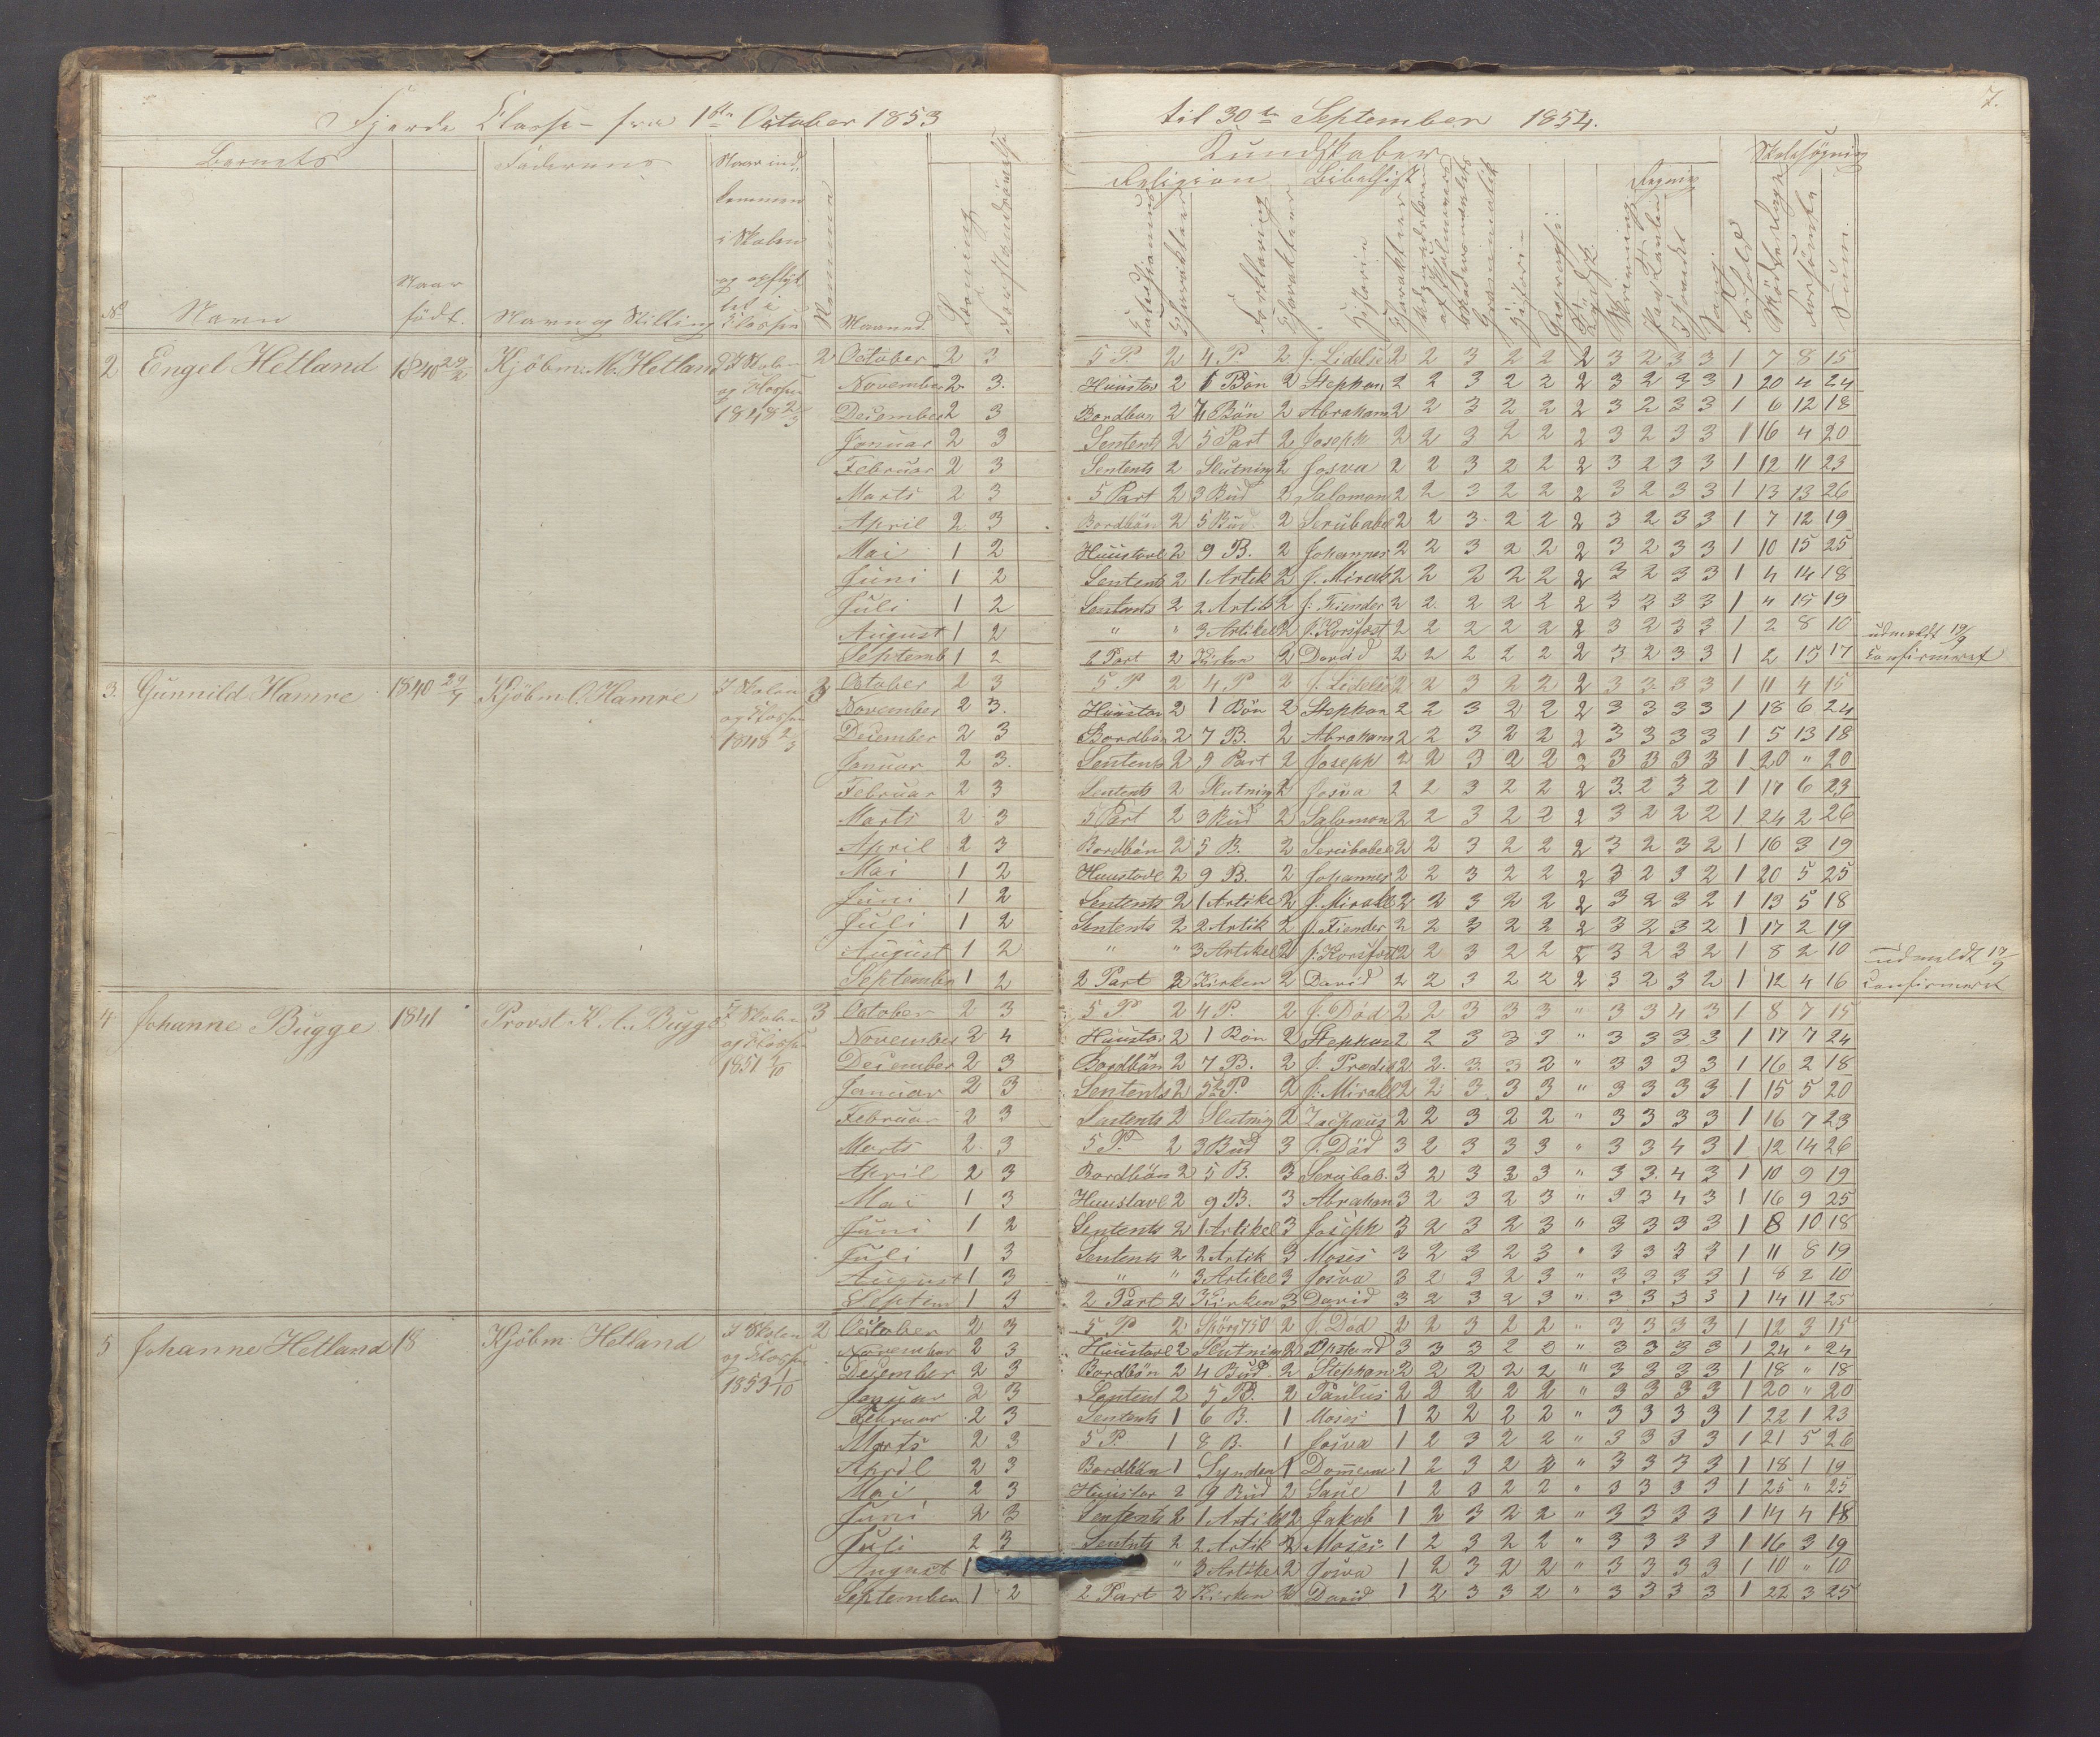 Fjerde Classe - fra 1ste October 1853 til 30te September 1854. 7.
Barnets Faderens Naar ind Kundskaber Skolesøgning
kommen Religion Bibelhist Regning
i Skolen
og opflyt
Naar tet i
No Navn født. Navn og Stilling Classen Nummer Maaned. Læsning Forstandsøvelse Characteer Forklaring Characteer Historie Characteer Grammatik Historie Geografi Skrivning Paa Tavlen Sang Forhold Mødte Dage Forsømte Sum.
2 Engel Hetland 1840 Kjøbm: M. Hetland I Skolen 2 October 2 3 5 P. 2 4 P. 2 J. Lidelse 2 2 3 2 2 2 3 2 3 3 1 7 8 15
og Classen November 2 3. Huustav 2 1 Bøn 2 Stephan 2 2 3 2 2 2 3 2 3 3 1 20 4 24
1848 2/3 December 2 3 Bordbøn 2 7 Bøn 2 Abraham 2 2 3 2 2 2 3 2 3 3 1 6 12 18
Januar 2 3 Sentents 2 5 Part 2 Joseph 2 2 3 2 2 2 3 2 3 3 1 16 4 20
Februar 2 3 Sentents 2 Slutning 2 Josva 2 2 3 2 2 2 3 2 3 3 1 12 11 23
Marts 2 3 5 Part 2 3 Bud 2 Salomon 2 2 3 2 2 2 3 2 3 3 1 13 13 26
April 2 3 Bordbøn 2 5 Bud 2 Serubabel 2 2 3 2 2 2 3 2 3 3 1 7 12 19
Mai 1 2 Huustavl 2 9 B. 2 Johannes 2 2 3 2 2 2 3 2 3 3 1 10 15 25
Juni 1 2 Sentents 2 1 Artik 2 J. Mirakl 2 2 2 2 2 2 3 2 3 3 1 4 14 18
Juli 1 2 Sentents 2 2 Artik 2 J. Fiender 2 2 2 2 2 2 3 3 3 3 1 4 15 19
August 1 2 " " 3 Artikel 2 J. Korsfæst 2 2 2 2 2 2 3 2 3 3 1 2 8 10 udmeldt 19/9
Septemb 1 2 2 Part 2 Kirken 2 David 2 2 2 2 2 2 3 2 3 3 1 2 15 17 Confirmeret
3. Gunnild Hamre 1840 29/7 Kjøbm C. Hamre I Skolen 3 October 2 3 5 P 2 4 P 2 J. Lidelse 2 2 3 2 2 2 3 3 3 3 1 11 4 15
og Classen November 2 3. Huustav 2 1 Bøn 2 Stephan 2 2 3 2 2 2 3 3 3 3 1 18 6 24
1848 2/3 December 2 3 Bordbøn 2 7 B. 2 Abraham 2 2 3 2 2 2 3 3 3 3 1 5 13 18
Januar 2 3. Sentents 2 5 Part 2 Joseph 2 2 3 2 2 2 3 3 3 3 1 20 " 20
Februar 2 3 Sentents 2 Slutning 2 Josva 2 2 3 2 2 2 3 2 3 2 1 17 6 23
Marts 2 3 5 Part 2 3 Bud 2 Salomon 2 2 3 2 2 2 3 2 2 2 1 24 2 26
April 2 3 Bordbøn 2 5 B. 2 Serubabel 2 2 3 2 2 2 3 2 3 2 1 16 3 19
Mai 1 2 Huustavl 2 9 B. 2 Johannes 2 2 3 2 2 2 3 2 3 2 1 20 5 25
Juni 1 2 Sentents 2 1 Artikel 2 J. Mirakl 2 2 3 2 2 2 3 2 3 2 1 13 5 18
Juli 1 2 Sentents 2 2 Artik 2 J. Fiender 2 2 3 2 2 2 3 2 3 2 1 17 2 19
August 1 2 " " 3 Artikel 2 J. Korsfæst 2 2 3 2 2 2 3 2 3 2 1 8 2 10 udmeldt 19/9
September 1 2 2 Part 2 Kirken 2 David 2 2 3 2 2 2 3 2 3 2 1 12 4 16 Confirmeret
4 Johanne Bugge 1841 Provst K. A. Bugge I Skolen 3 October 2 3 5 P 2 4 P. 2 J. Død 2 2 3 3 3 " 3 3 4 3 1 8 7 15
og Classen November 2 4 Huustav 2 1 Bøn 2 Stephan 2 2 3 3 3 " 3 3 3 3 1 17 7 24
1851 1/10 December 2 3 Bordbøn 2 7 B. 2 J. Prædik 2 2 3 3 2 " 3 3 3 3 1 16 2 18
Januar 2 3 Sentents 2 5te P. 2 J. Mirakl 2 2 3 3 3 " 3 3 3 3 1 15 5 20
Februar 2 3 Sentents 2 Slutning 2 Zachæus 2 2 3 2 2 " 3 3 3 3 1 16 7 23
Marts 2 3 5 P. 2 3 Bud 3 J. Død 3 2 3 3 3 " 3 3 4 3 1 12 14 26
April 2 3 Bordbøn 2 5 B. 3 Serubab. 3 2 3 3 3 " 3 3 4 3 1 10 9 19
Mai 1 3 Huustavl 2 9 B. 3 Abraham 3 2 3 2 3 " 3 3 4 3 1 16 9 25
Juni 1 2 Sentents 2 1 Artikel 3 Joseph 3 2 3 2 3 " 3 3 3 3 1 8 10 18
Juli 1 3 Sentents 2 2 Artik 3 Moses 3 2 3 2 3 " 3 3 3 3 1 11 8 19
August 1 3 " " 3 Artikel 3 Josva 3 2 3 2 3 " 3 3 3 3 1 8 2 10
Septem 1 3 2 Part 2 Kirken 3 David 3 2 3 2 3 " 3 3 3 3 1 14 11 25
5 Johanne Hetland 18 Kjøbm: Hetland I Skolen 2 October 2 3 5 P 2 Spørs 750 2 J. Død 2 2 3 2 2 " 3 3 3 3 1 12 3 15
og Classen November 2 3 Huustavl 2 Slutning 2 3 3 3 2 2 " 3 3 3 3 1 24 " 24
1853 1/10 December 2 3 Bordbøn 2 4 Bud. 2 Stephan 2 2 2 2 2 " 3 3 3 3 1 18 " 18
Januar 2 3 Sentent 2 5 B. 2 Paulus 2 2 2 2 2 " 3 3 3 3 1 20 " 20
Februar 2 3 Sentents 1 6 B. 1 Moses 1 2 2 2 2 " 3 3 3 3 1 22 1 23
Marts 2 3 5 P. 1 8 B. 1 Josva 1 2 3 2 2 " 3 3 3 3 1 21 5 26
April 2 3 Bordbøn 1 Synden 1 Dommerne 1 2 3 2 2 " 3 3 3 3 1 18 1 19
Mai 2 3 Huustav 2 9 Bud 2 Saul 1 2 3 2 2 " 3 3 3 3 1 25 " 25
Juni 2 3 Sentents 2 1 Artikl 2 Jakob 1 2 3 2 2 " 3 3 3 3 1 14 4 18
Juli 2 3 Sentnts 2 2 Artik 2 Moses 1 2 3 2 2 " 3 3 3 3 1 16 3 19
August 1 " 3 Artikel 2 Josva 1 2 3 2 2 " 3 3 3 3 1 10 " 10
September 1 2 2 Part 2 Kirken 2 David 1 2 3 3 2 " 3 3 3 3 1 22 3 25